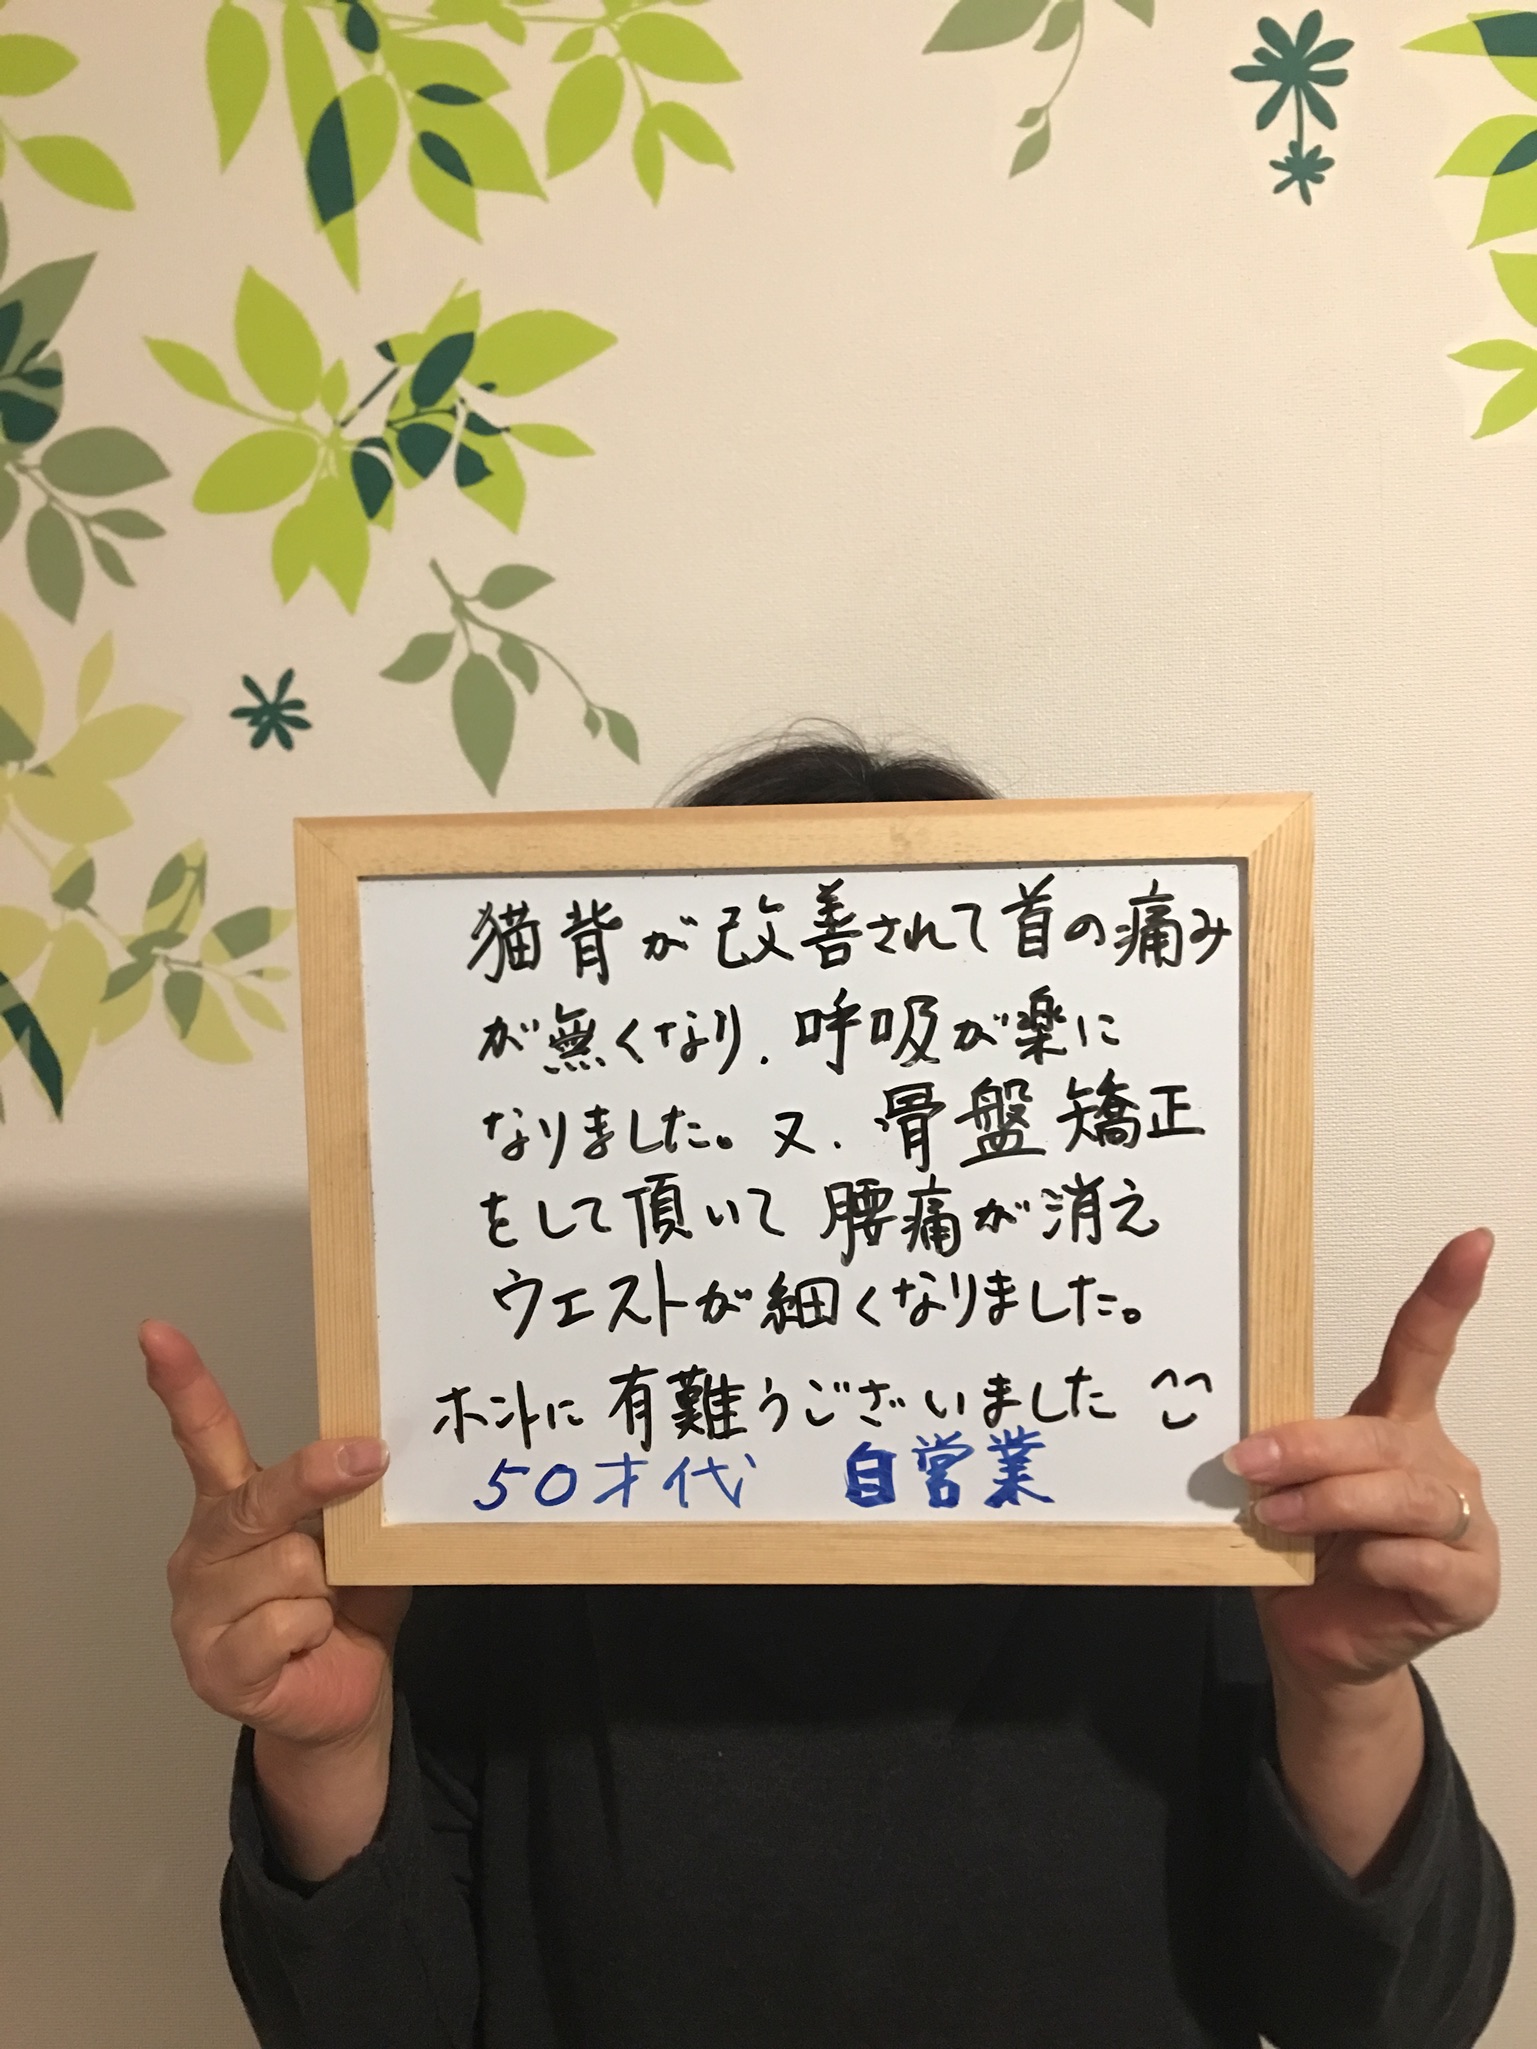 猫背が改善されて首の痛み
が無くなり、呼吸が楽に
なりました。又、骨盤矯正
をして頂いて腰痛が消え
ウエストが細くなりました。
ホントに有難うございました ^^
50才代 自営業